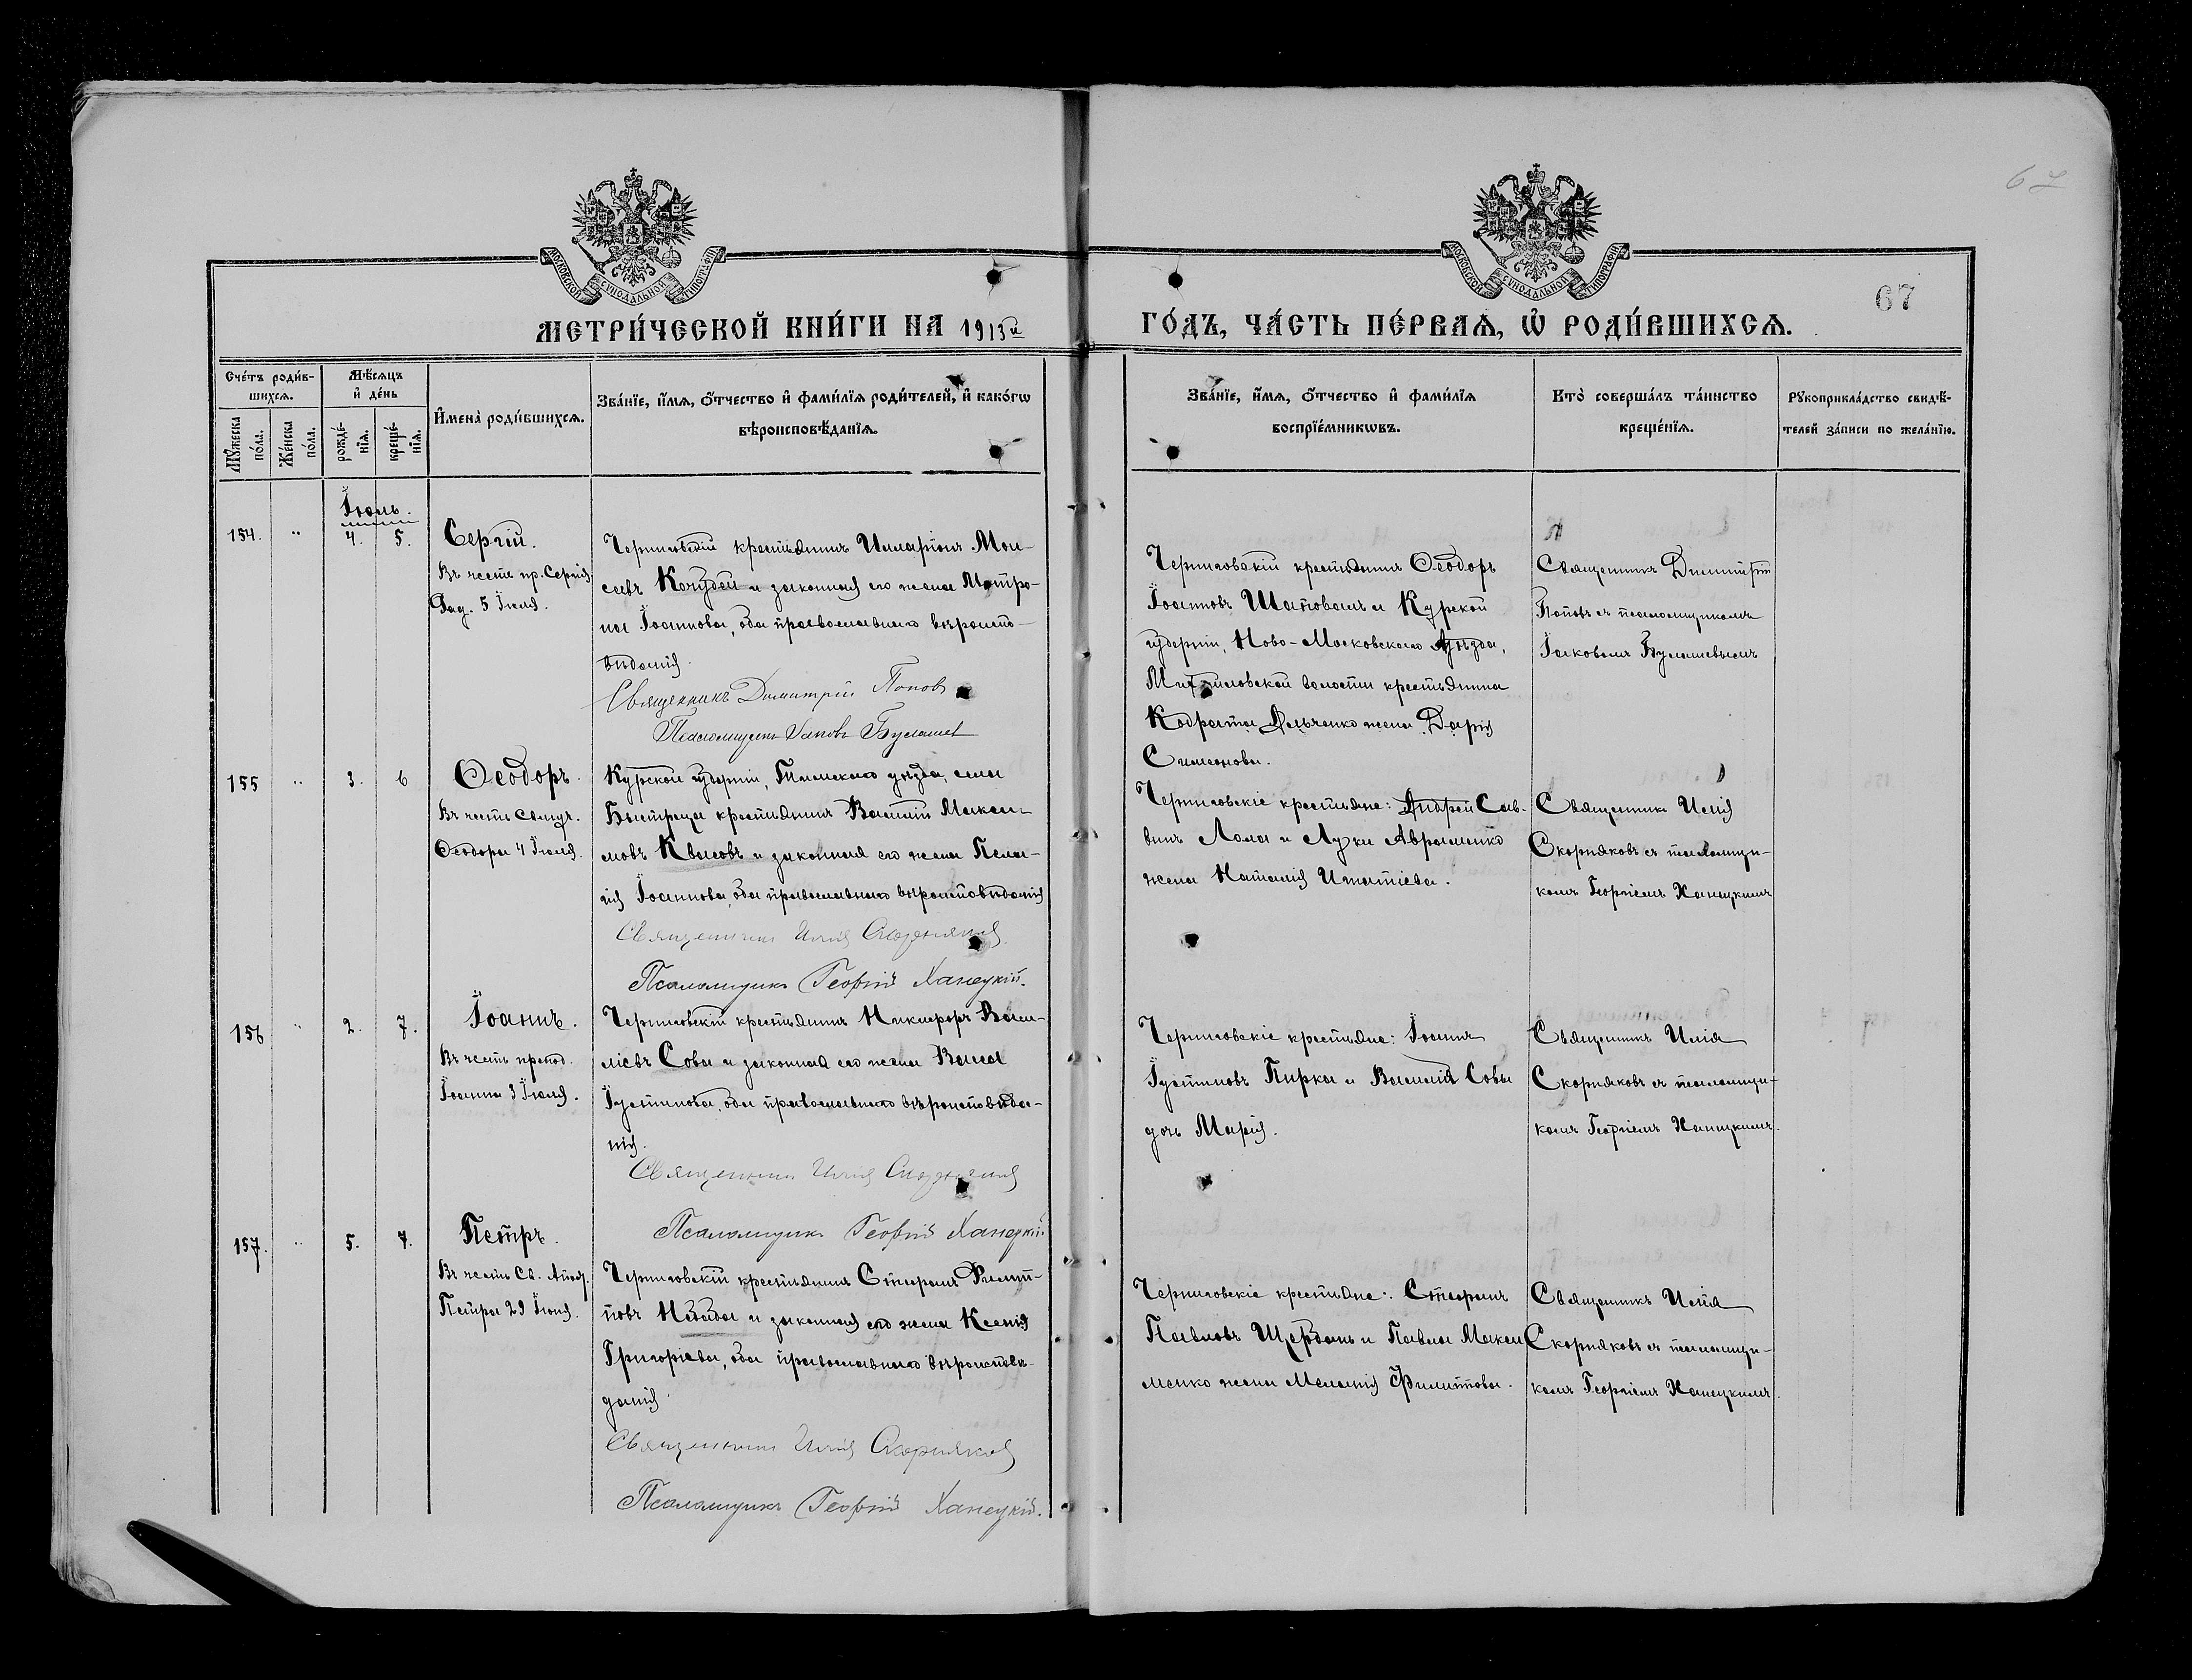 67
МОСКОВСКОЙ СѴНОДАЛЬНОЙ ТИПОГРАФІИ
МОСКОВСКОЙ СѴНОДАЛЬНОЙ ТИПОГРАФІИ
67
МЕТРИ́ЧЕСКОЙ КНИ́ГИ НА 1913й
ГО́ДЪ, ЧА́СТЬ ПЕ́РВАѦ, Ѡ҆ РОДИ́ВШИХСѦ.
Сче́тъ роди́в-
шихсѧ.
Мꙋ́жеска по́ла.
Же́нска по́ла.
Мѣ́сѧцъ
и҆ де́нь
рожде́-нїѧ.
креще́-нїѧ.
И҆мена̀ роди́вшихсѧ.
Зва́нїе, и҆́мѧ, ѻ҆́тчество и҆ фами́лїѧ роди́телей, и҆ како́гѡ
вѣроисповѣ́данїѧ.
Зва́нїе, и҆́мѧ, ѻ҆́тчество и҆ фами́лїѧ
воспрїе́мникѡвъ.
Кто̀ соверша́лъ та́инство
креще́нїѧ.
Рꙋкоприкла́дство свидѣ́-
телей за́писи по жела́нїю.
Іюль.
154. " 4. 5.
Сергій.
Въ честь пр. Сергія
Рад. 5 Іюля.
Черниговскій крестьянинъ Илларіонъ Мои-
сеевъ Кочубей и законная его жена Матро-
на Іоаннова, оба православнаго вѣроиспо-
вѣданія.
Священникъ Димитрій Поповъ
Псаломщикъ Іаковъ Булашев
Черниговскій крестьянинъ Ѳеодоръ
Іоанновъ Шаповалъ и Курской
губерніи, Ново-Московскаго уѣзда,
волости крестьянина
Кодрата жена Дарія
Симеонова.
Священникъ Димитрій
Поповъ съ псаломщикомъ
Іаковомъ Булашевымъ
155 " 3. 6
Ѳеодоръ.
Въ честь
Ѳеодора 4 Іюля.
Курской губерніи, Тимскаго уѣзда, села
Быстреца крестьянинъ Василій Макси-
мовъ Квасовъ и законная его жена Пела-
гія Іоаннова, оба православнаго вѣроисповѣданія
Священникъ Илія Скорняковъ
Псаломщикъ Георгій Ханецкій.
Черниговскіе крестьяне: Андрей Сав-
винъ Лома и Луки Авраменко
жена Наталія Игнатіева.
Священникъ Илія
Скорняковъ съ псаломщи-
комъ Георгіемъ Ханецкимъ
156 " 2. 7.
Іоаннъ.
Въ честь препод.
Іоанна 3 Іюля.
Черниговскій крестьянинъ Никифоръ Васи-
ліевъ Сова и законная его жена Васса
Іустинова, оба православнаго вѣроисповѣда-
нія.
Священникъ Илія Скорняковъ
Псаломщикъ Георгій Ханецкій.
Черниговскіе крестьяне: Іоаннъ
Іустиновъ Пирка и Василія Совы
дочь Марія.
Священникъ Илія
Скорняковъ съ псаломщи-
комъ Георгіемъ Ханецкимъ.
157. " 5. 7.
Петръ.
Въ честь Св. Апост.
Петра 29 Іюня.
Черниговскій крестьянинъ Стефанъ Филип-
повъ Небаба и законная его жена Ксенія
Григоріева, оба православнаго вѣроисповѣ-
данія.
Священникъ Илія Скорняковъ
Псаломщикъ Георгій Ханецкій.
Черниговскіе крестьяне: Стефанъ
Павловъ Щербань и Павла Макси
менко жена Меланія Филиппова.
Священникъ Илія
Скорняковъ съ псаломщи-
комъ Георгіемъ Ханецкимъ.